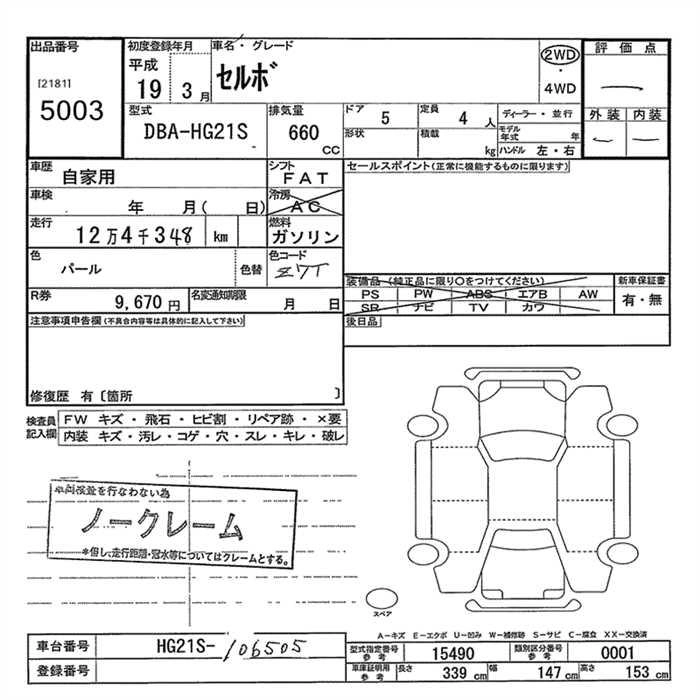 出品番号
[2181]
5003
初度登録年月
平成
19 3月
車名・グレード
セルボ
2WD
・
4WD
評価点
外装 内装
型式
DBA-HG21S
排気量
660
CC
ドア 5
定員 4 人
形状
積載 kg
ディーラー・並行
モデル年式 年
ハンドル 左・右
車歴
自家用
シフト
FAT
車検
年 月( 日)
冷房
AC
走行
12万4千348 km
燃料
ガソリン
色
パール
色替
色コード
Z7T
R券
9,670 円
名変通知期限
月 日
セールスポイント(正常に機能するものに限ります)
装備品 (純正品に限り○をつけてください)
PS PW ABS エアB AW
SR ナビ TV カワ
新車保証書
有・無
後日品
注意事項申告欄(不具合内容等は具体的に記入して下さい)
修復歴 有〔箇所 〕
検査員記入欄
FW キズ・飛石・ヒビ割・リペア跡・×要
内装 キズ・汚レ・コゲ・穴・スレ・キレ・破レ
車両検査を行なわない為
ノークレーム
*但し、走行距離・冠水等についてはクレームとする。
スペア
A－キズ E－エクボ U－凹み W－補修跡 S－サビ C－腐食 XX－交換済
車台番号
HG21S-106505
登録番号
型式指定番号参考
15490
類別区分番号参考
0001
車庫証明用参考
長さ 339 cm
幅 147 cm
高さ 153 cm